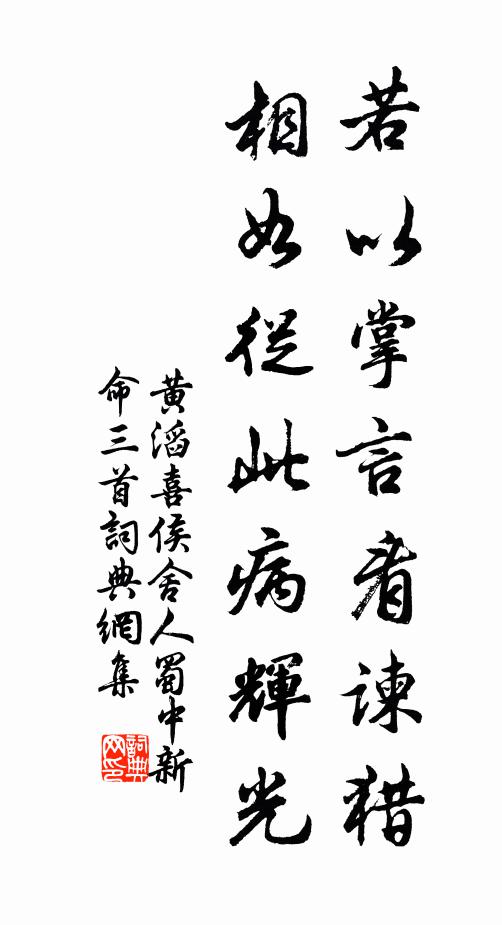 若以掌言看諫獵
相如從此病輝光
黃滔喜侯舍人蜀中新
命三首詞典網集
詞典
网印